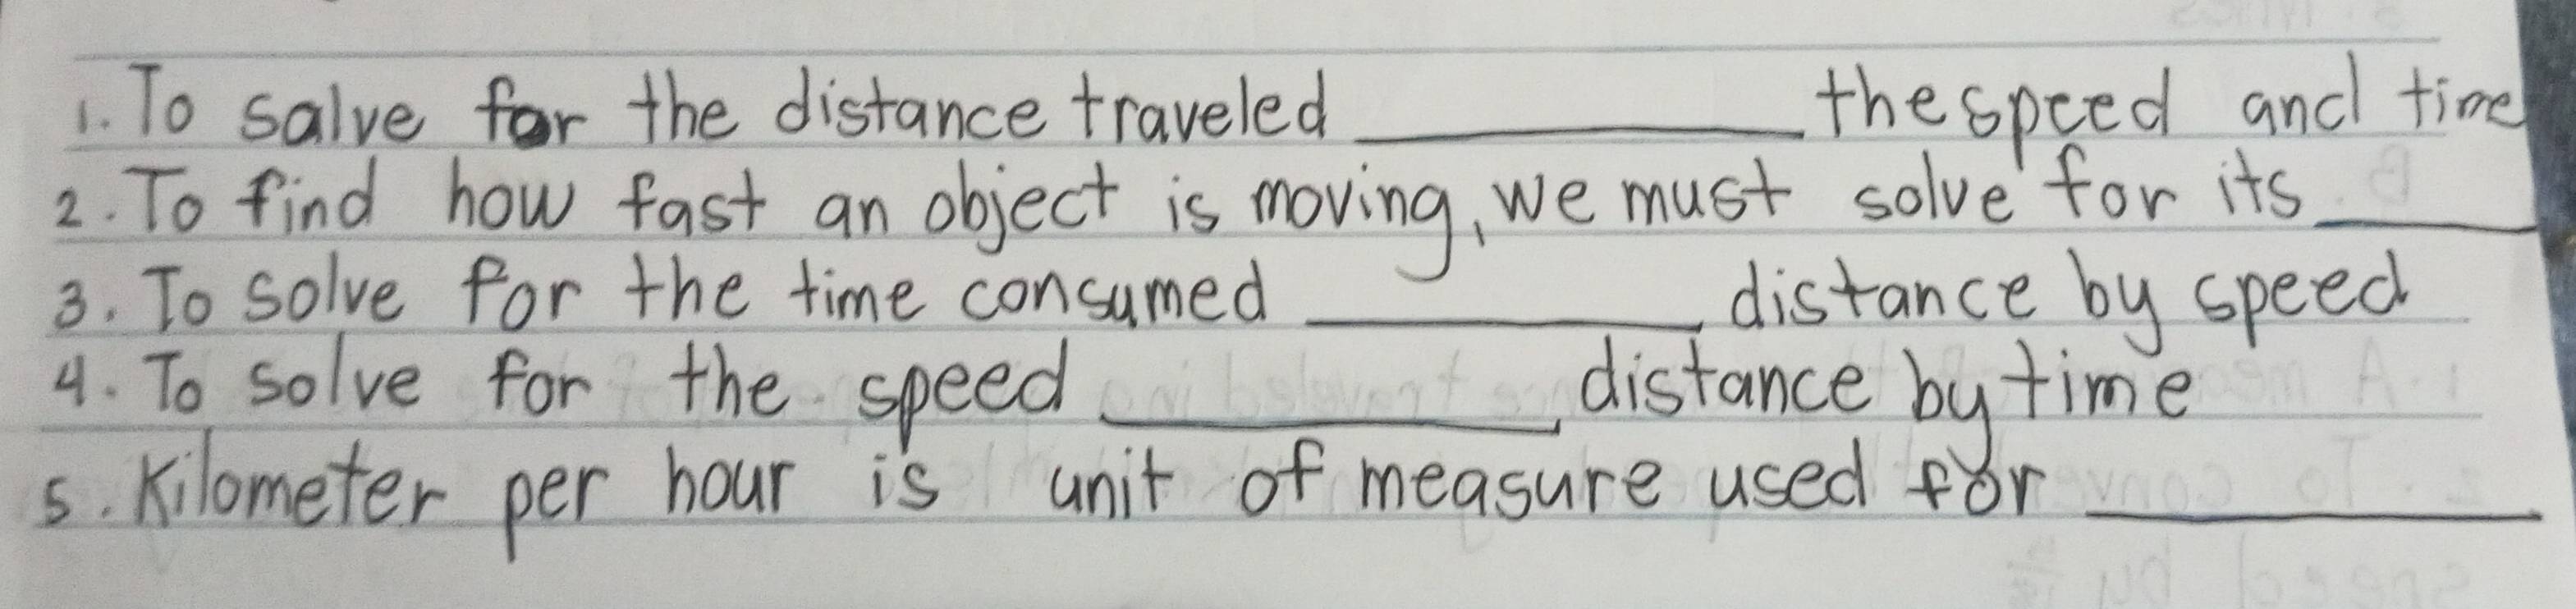 1. To salve for the distance traveled __________ the speed and time
2. To find how fast an object is moving, we must solve for its _____
3. To solve for the time consumed __________ distance by speed
4. To solve for the speed __________ distance by time
5. Kilometer per hour is unit of measure used for __________